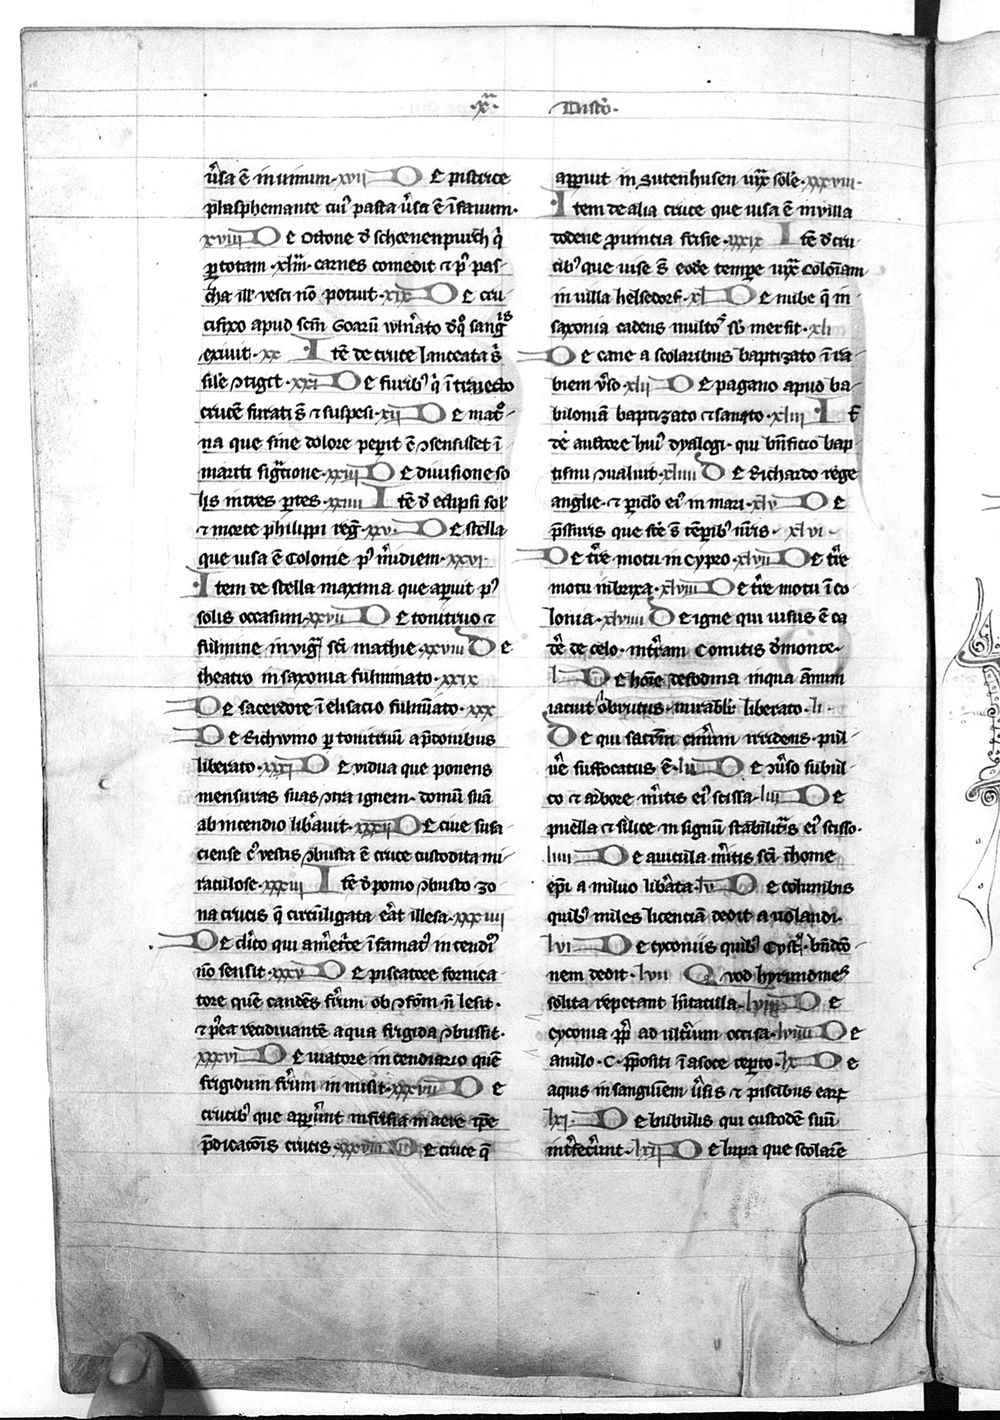 ·x̄· Distō·
ṽsa ē in vinum·xvii De pistrice
plasphemante cuiꝰ pasta ṽsa ē ĩ fauum·
xviii De Ottone d̓ schoenenpurch q̇
ꝑ totam ·xlm̄· carnes comedit ⁊ pꝰ pas-
cha ill' vesci nō potuit·xix De cru
cifixo apud scm̄ Goarū wlñato d̓ quo sangꝰs
exiuit·xx Itē de cruce lanceata q̃
file ↄtigit·xxi De furibꝰ q̇ ĩ traiecto
crucē furati sʼt ⁊ suspēsi·xxii De matro-
na que sine dolore peperit ē ↄsensisset ĩ
mariti signc̄tione·xxiii De diuisione so
lis in tres ꝑtes·xxiiii Itē d̓ eclipsi sol'
⁊ morte philippi reg̃·xxv· De stella
que uisa ē Colonie pꝰ m̓idiem·xxvi·
Item de stella maxima que apparuit pꝰ
solis occasum·xxvii De tonitruo ⁊
fulmine in vigl̃ sc̃i mathie·xxviii De
theatro in saxonia fulminato·xxix
De sacerdote ĩ elisacio fulm̄ato·xxx
De Richwino ꝑ tonitruū a p̃donibus
liberato·xxxi De vidua que ponens
mensuras suas ↄtra ignem· domū suā
ab incendio lib̓auit·xxxii De ciue susa-
ciense cꝰ vestis ↄbusta ē cruce custodita mi-
raculose·xxxiii Itē d̓ pomo ↄbusto zo
na crucis q̄ circūligata erat illesa·xxxiiii
De cl̓ico qui am̓etrice ĩfamatꝰ incendiꝰ
nō sensit·xxxv De piscatore fornica
tore quē candēs ferrum ob ↄfōm n̄ lesit·
⁊ p̓ea recidiuantē aqua frigida ↄbussit·
xxxvi De uiatore incendiario quē
frigidum ferrum in misit·xxxvii De
crucibꝰ que apparuerunt in frisia in aere tp̄e
p̄dicatōis crucis·xxxviii De cruce q̄
apparuit in Sutenhusen iuxta sole·xxxviii·
Item de alia cruce que uisa ē in villa
todene prouincia frisie·xxxix Itē d̓ cru
cibꝰ que uise s̄t eodē tempore iuxta Coloniam
in uilla helsedorf·xl De nube q̄ in
saxonia cadens multos submersit·xli
De cane a scolaribus baptizato ĩ ra
biem ṽso·xlii De pagano apud ba-
biloniā baptizato ⁊ sanato·xliii Itē
dē auctore huiꝰ dyalogi· qui bn̄ficio bap
tismi ↄualuit·xliiii De Richardo rege
anglie· ⁊ periclo eiꝰ in mari·xlv De
p̄ssuris que fc̄e sʼt tēporibꝰ nr̄is· xlvi·
De t̓re motu in cypro·xlvii De t̓re
motu in brixa·xlviii De t̓re motu ĩ co
lonia·xlviiii De igne qui uisus ē ca
dere de celo· in t̓ram Comitis d̓ monte·
l De hoīe de sodoma in qua annum
iacuit obrutus· mirabl̓r liberato·li·
De qui sacrām cin̄rum irridens· pul-
uere suffocatus ē·lii De ↄu̓so subul-
co ⁊ arbore m̓itis eiꝰ scissa·liii De
puella ⁊ silice in signū stabilitatis eiꝰ scisso·
liiii De auicula m̓itis sc̃i thome
ep̄i a miluo lib̓ata·lv De columbis
quibꝰ miles licenciā dedit auolandi·
lvi De cyconiis quibꝰ Cysterc̃· bn̄dc̄o
nem dedit·lvii Quod hyrundines
solita repetant hītacula·lviii De
cyconia ꝓp̃ adulterium occisa·lviiii De
anulo·C·p̄positi ĩ asoce reperto·lx De
aquis in sanguinem ṽsis ⁊ piscibus earꝫ
lxi· De bubulis qui custodē suū
interfecerunt·lxii De lupa que scolarē